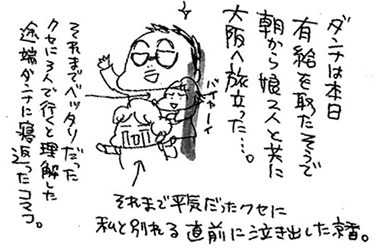 ダンナは本日
有給を取たそうで
朝から娘2人と共に
大阪へ旅立った…。
バイバーイ
それまでベッタリだった
クセに3人で行くと理解した
途端ダンナに寝返ったコマコ。
それまで平気だったクセに
私と別れる直前に泣き出した